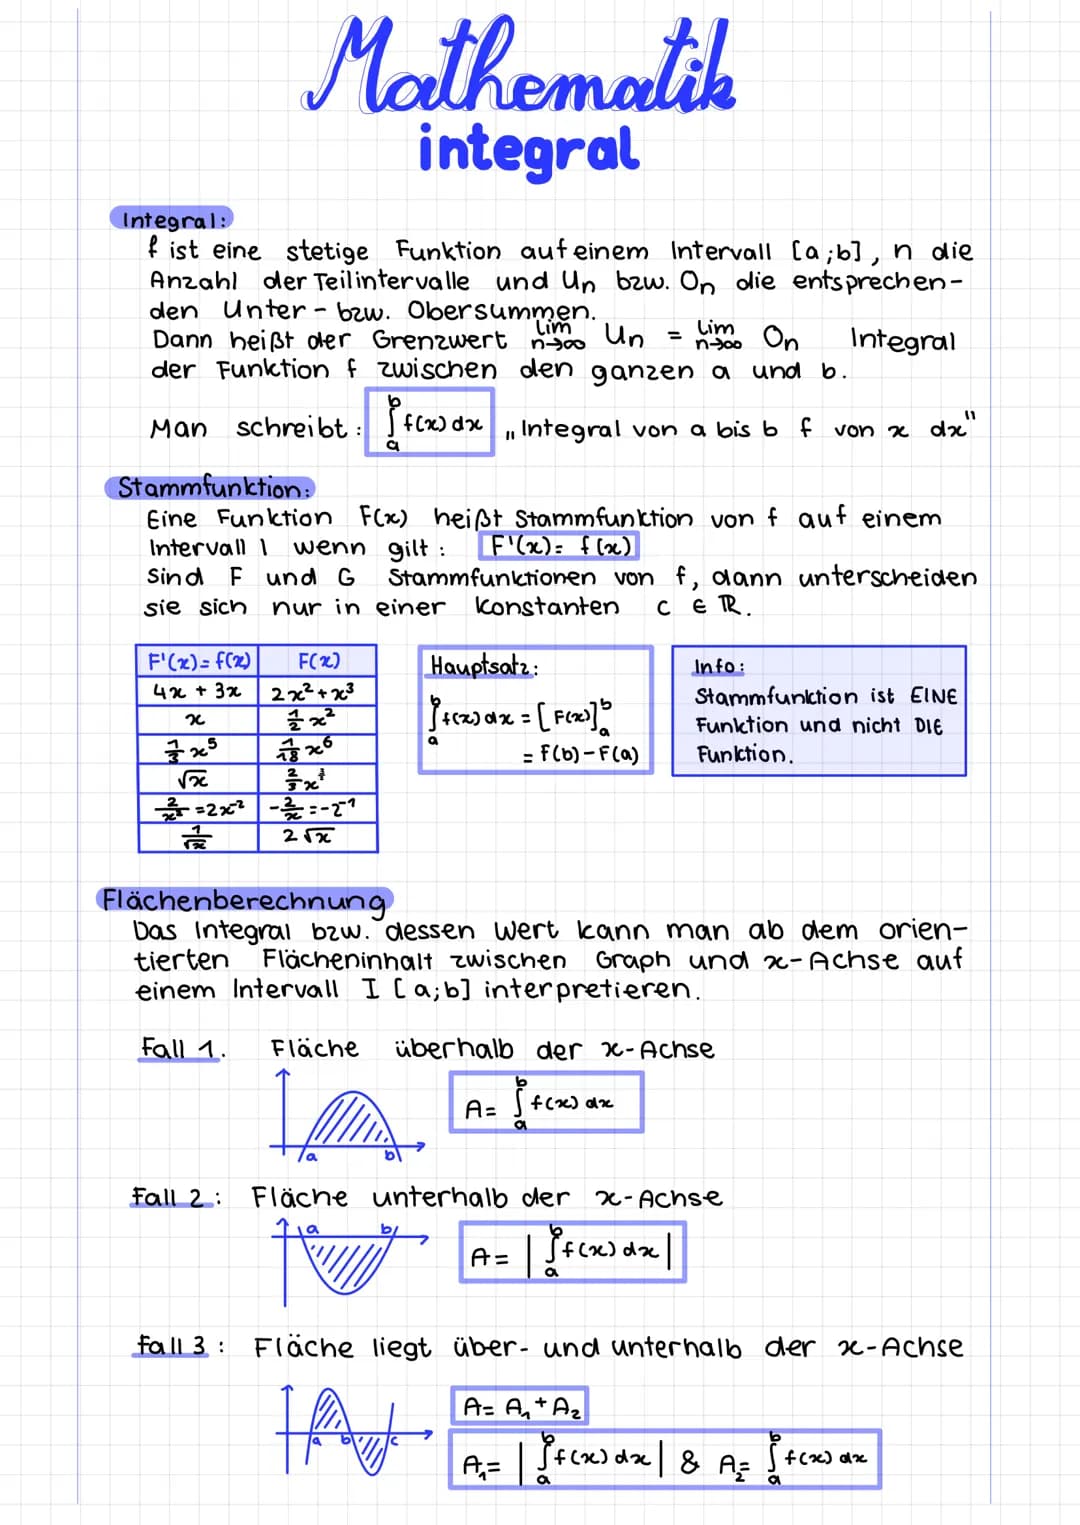 Mathematik
integral
Integral:
f ist eine stetige Funktion auf einem Intervall [a;b], n die
Anzahl der Teilintervalle und Un bzw. On die entsprechen-
den Unter- bzw. Obersummen.
Dann heißt der Grenzwert lim n→∞ Un = lim n→∞ On Integral
der Funktion f zwischen den ganzen a und b.
Man schreibt: ∫ₐᵇ f(x) dx „Integral von a bis b f von x dx"
Stammfunktion:
Eine Funktion F(x) heißt Stammfunktion von f auf einem
Intervall I wenn gilt: F'(x)= f(x)
Sind F und G Stammfunktionen von f, dann unterscheiden
sie sich nur in einer Konstanten c ∈ ℝ.
F'(x)= f(x) F(x)
4x + 3x 2x² + x³
x 1/2 x²
1/3 x⁵ 1/18 x⁶
√x 2/3 x^(3/2)
2/x² = 2x⁻² -2/x = -2⁻¹
1/√x 2√x
Hauptsatz:
∫ₐᵇ f(x) dx = [F(x)]ₐᵇ
= F(b) - F(a)
Info:
Stammfunktion ist EINE
Funktion und nicht DIE
Funktion.
Flächenberechnung
Das Integral bzw. dessen Wert kann man ab dem orien-
tierten Flächeninhalt zwischen Graph und x-Achse auf
einem Intervall I [a;b] interpretieren.
Fall 1. Fläche überhalb der x-Achse
a b
A= ∫ₐᵇ f(x) dx
Fall 2: Fläche unterhalb der x-Achse
a b
A= | ∫ₐᵇ f(x) dx |
Fall 3: Fläche liegt über- und unterhalb der x-Achse
a b c
A= A₁ + A₂
A₁= | ∫ₐᵇ f(x) dx | & A₂= ∫ₐᵇ f(x) dx